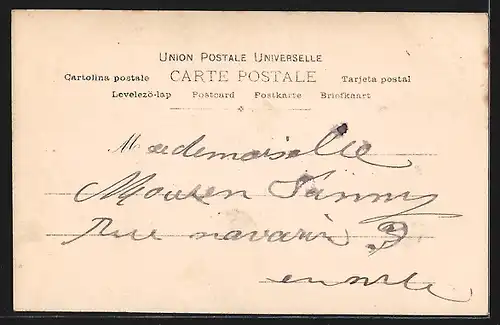 UNION POSTALE UNIVERSELLE
Cartolina postale CARTE POSTALE Tarjeta postal
Levelezö-lap Postcard Postkarte Briefkaart
Mademoiselle
Mouren Fanny
Rue navarin 9
en ville